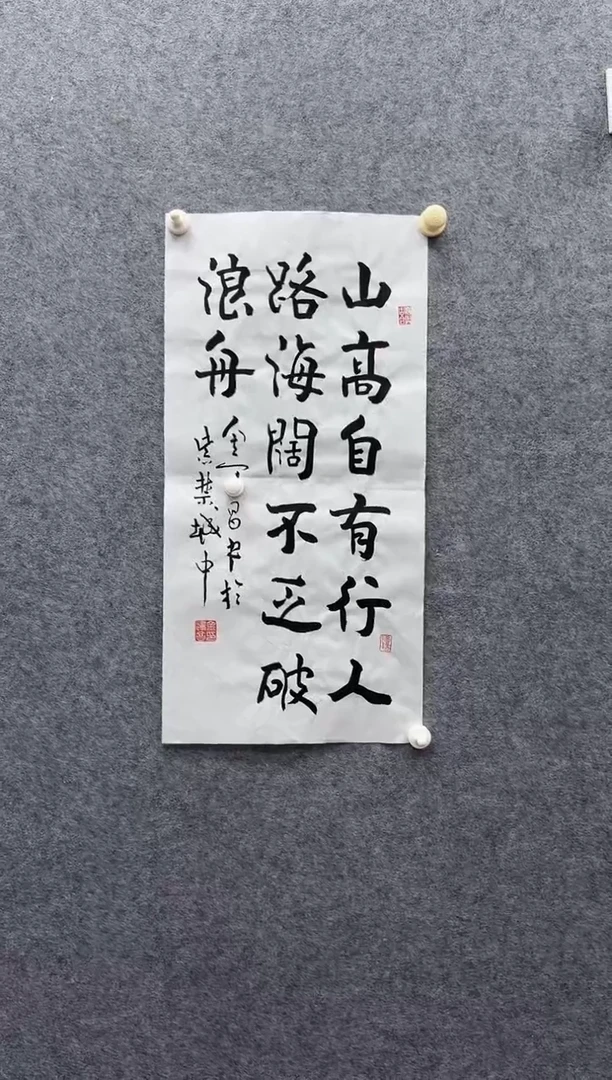 山高自有行人
路海阔不乏破
浪舟
昌书于
紫禁城中